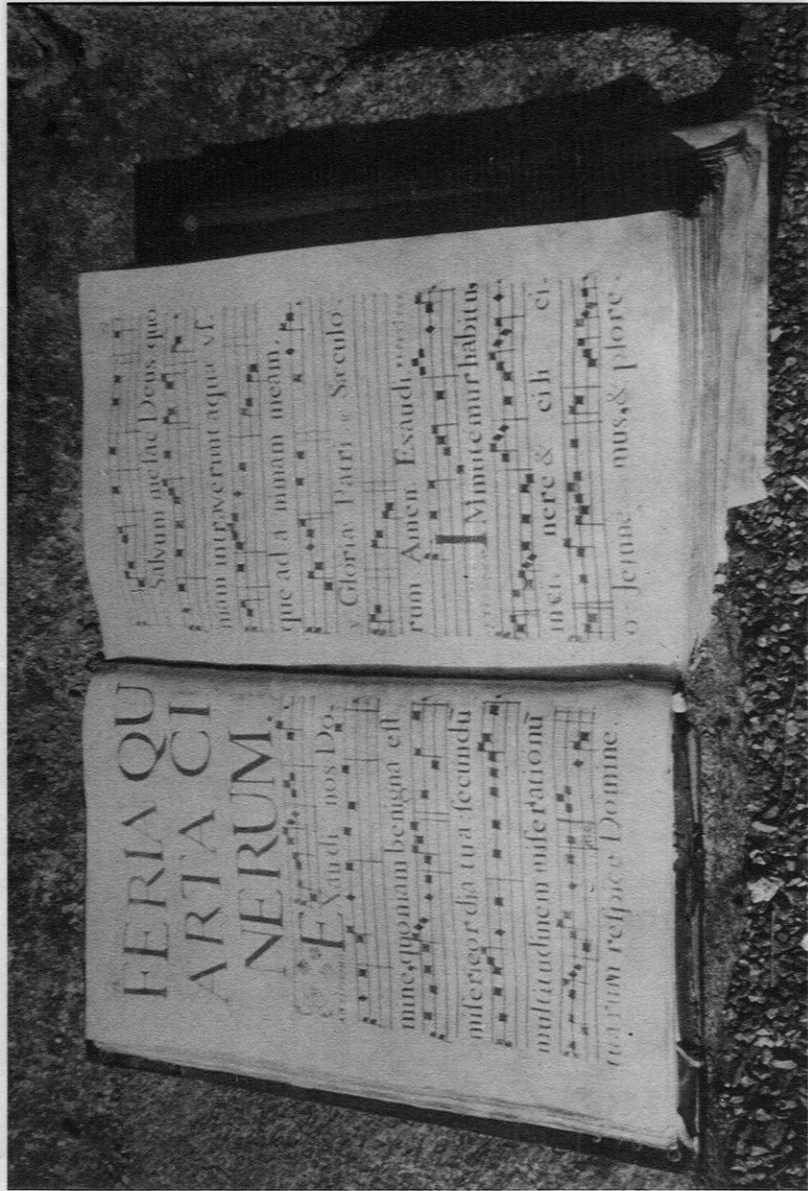 FERIA QU
ARTA CI
NERUM.
EXaudi nos Do-
mine, quoniam benigna est
misericordia tua secundū
multitudinem miserationū
tuarum respice Domine.
Salvum me fac Deus quo
niam intraverunt aquæ us.
que ad a nimam meam.
v Gloria Patri v Sæculo.
rum Amen Exaudi
IMmutemur habitu,
in ci nere & cili ci.
o Jejune mus, & plore.